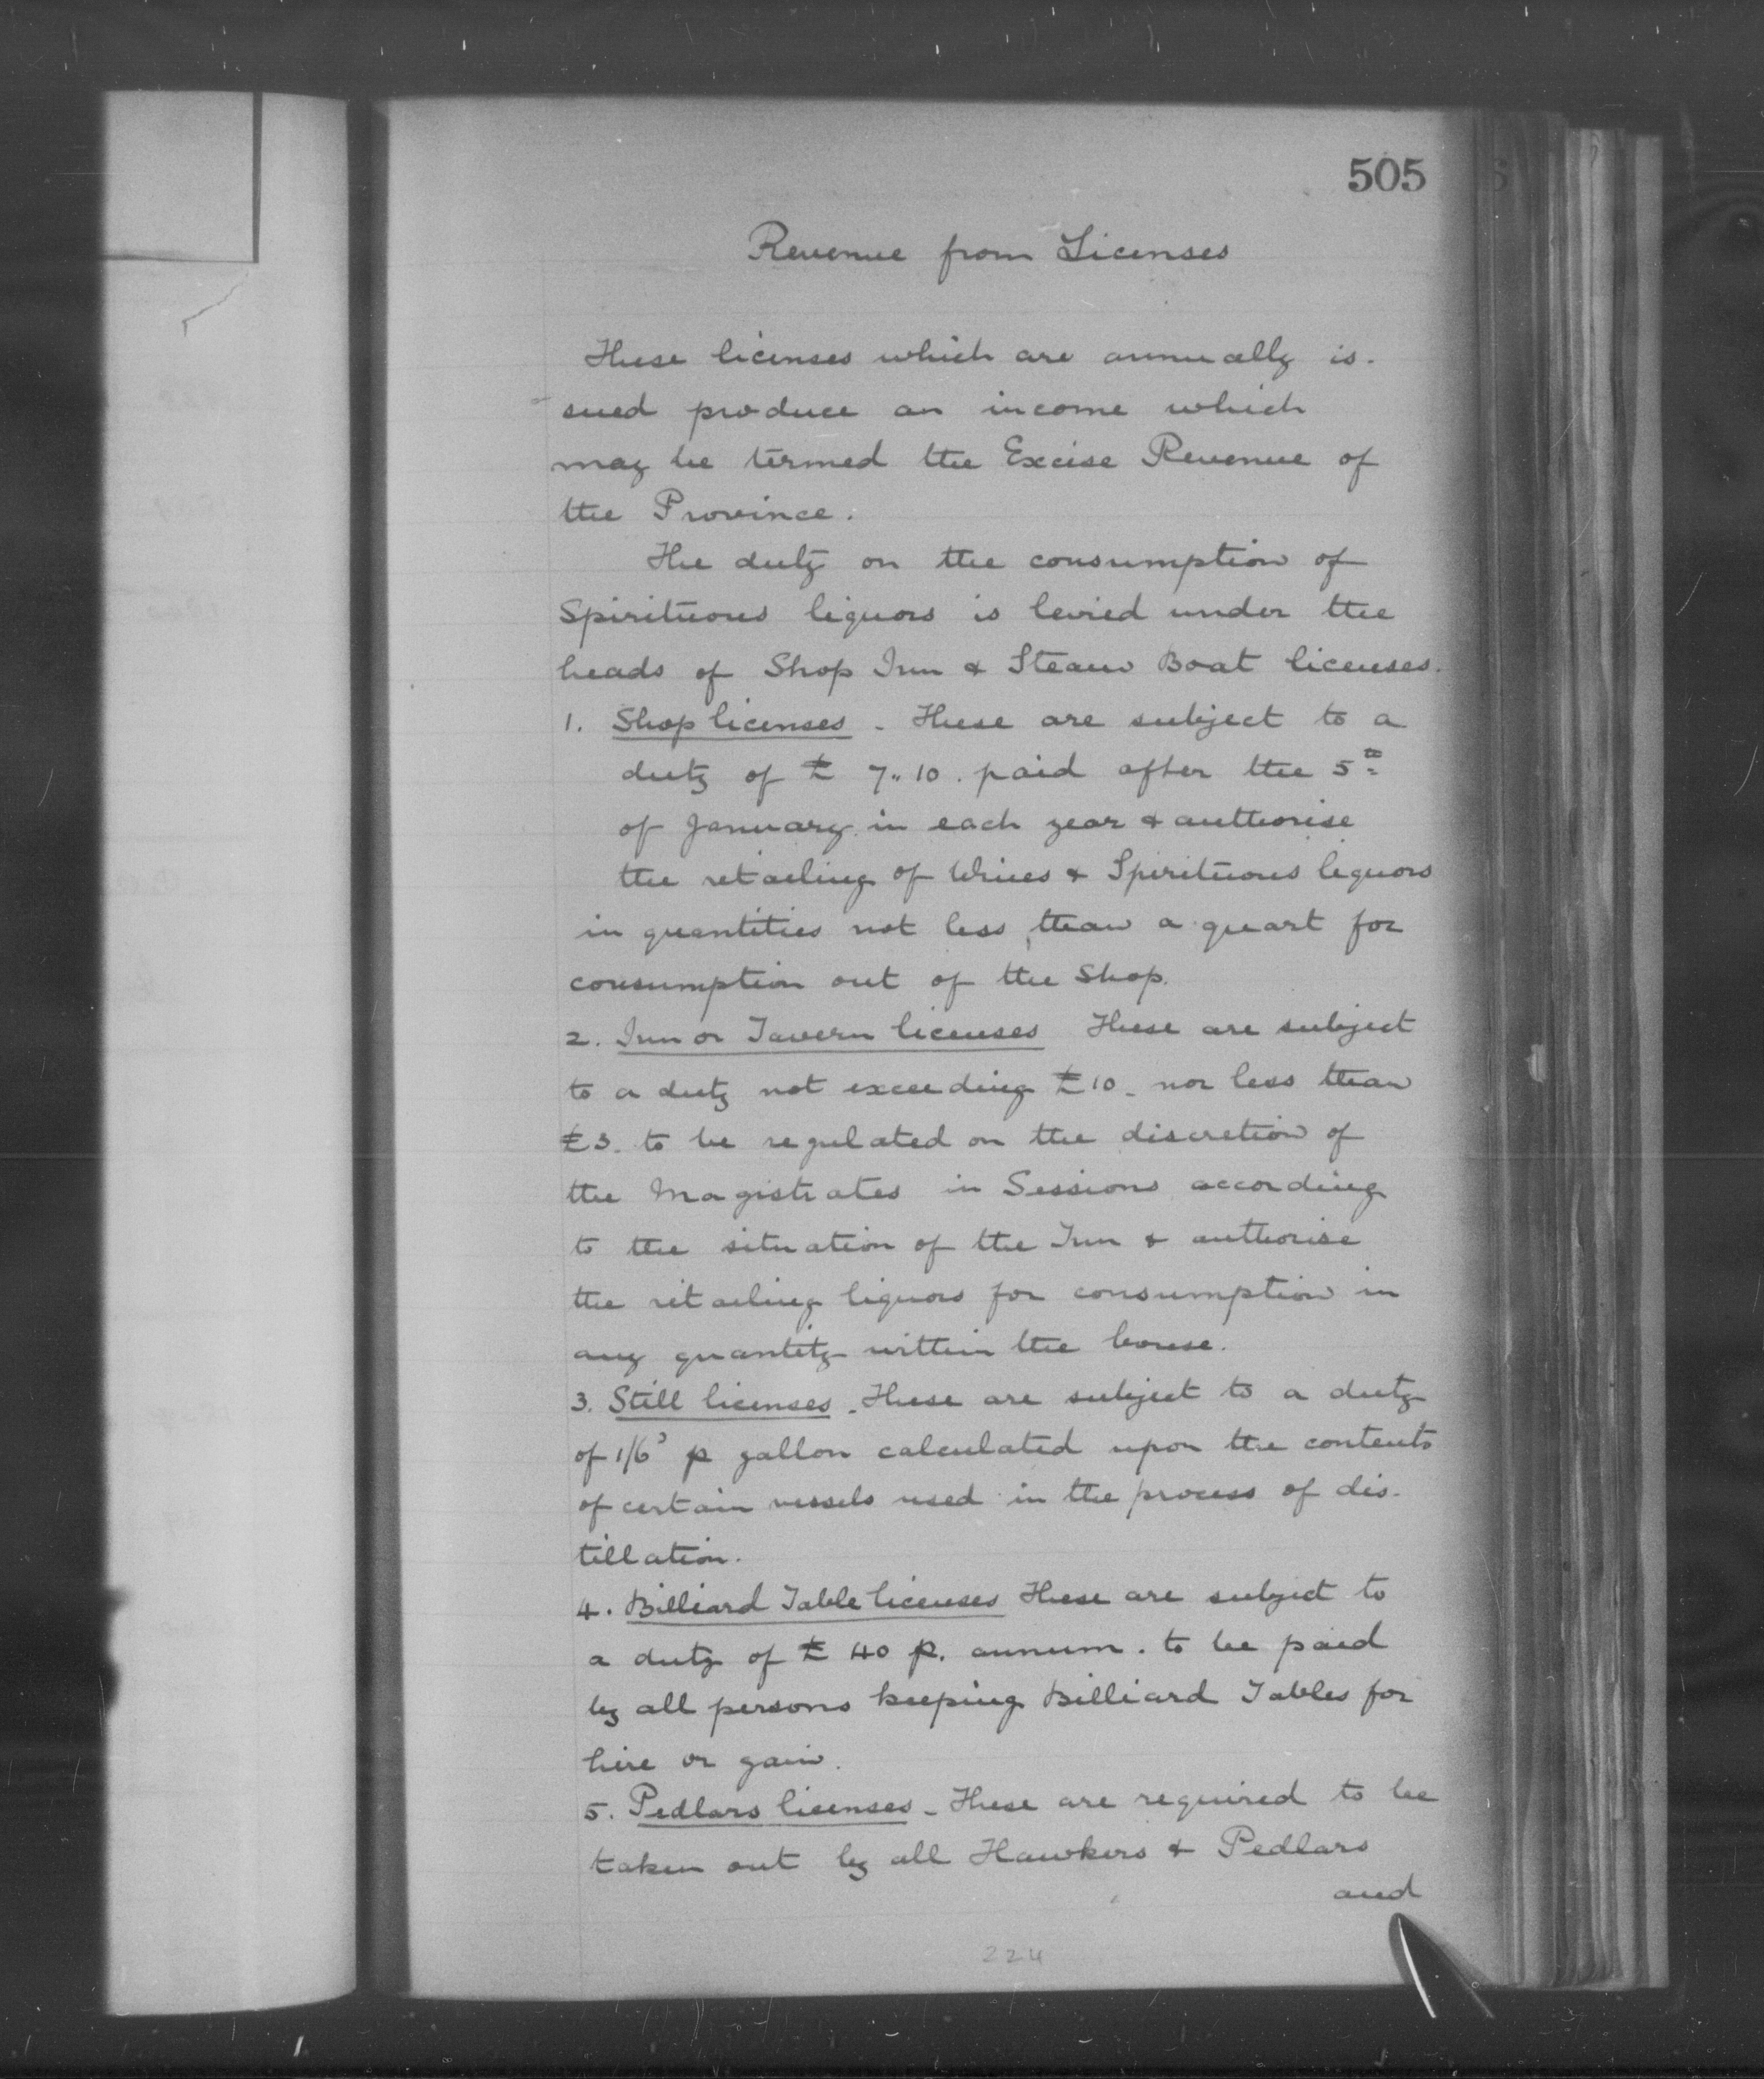 505
Revenue from Licenses
These licenses which are annually is-
sued produce an income which
may be termed the Excise Revenue of
the Province.
The duty on the consumption of
Spirituous liquors is levied under the
heads of Shop Inn & Steam Boat licenses.
1. Shop licenses - These are subject to a
duty of £ 7.. 10. paid after the 5th
of January in each year & authorise
the retailing of Wines & Spirituous liquors
in quantities not less than a quart for
consumption out of the Shop.
2. Inn or Tavern licenses These are subject
to a duty not exceeding £10 - nor less than
£3. to be regulated on the discretion of
the Magistrates in Sessions according
to the situation of the Inn & authorise
the retailing liquors for consumption in
any quantity within the house.
3. Still licenses - These are subject to a duty
of 1/6 p gallon calculated upon the contents
of certain vessels used in the process of dis-
tillation.
4. Billiard Table licenses These are subject to
a duty of £ 40 p. annum. to be paid
by all persons keeping Billiard Tables for
hire or gain.
5. Pedlars lisenses - These are required to be
taken out by all Hawkers & Pedlars
and
224